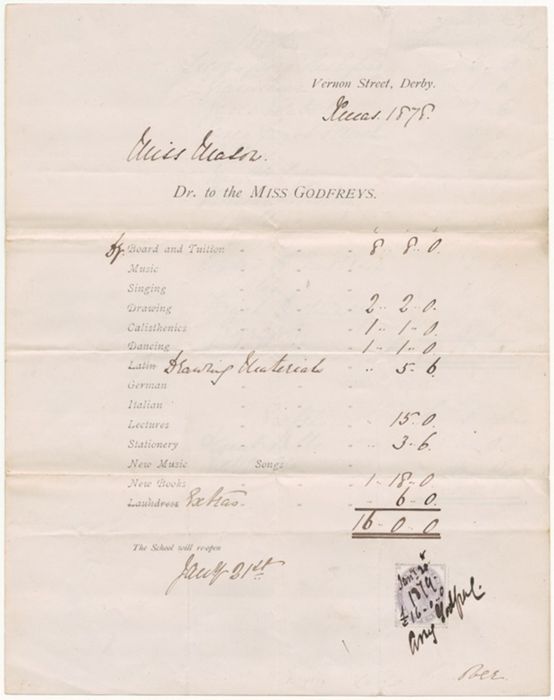 Vernon Street, Derby.
Xmas. 1878.
Miss Mason.
Dr. to the MISS GODFREYS.
Board and Tuition - - - 8 .. 8 .. 0.
Music - - -
Singing - - -
Drawing - - - 2 .. 2 .. 0.
Calisthenics - - - 1 .. 1 .. 0
Dancing - - - 1 .. 1 .. 0
Latin Drawing Materials - .. 5 .. 6
German - - -
Italian - - -
Lectures - - - 15 .. 0
Stationery - - - 3 .. 6.
New Music Songs - -
New Books - - - 1 .. 18 .. 0
Laundress Extras. - - 6 .. 0.
16 .. 0 .. 0
The School will re-open
Jany 21st
1879.
£16 .. 0 .. 0